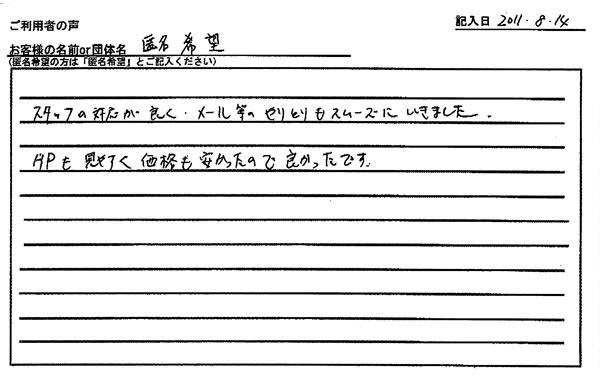 ご利用者の声
記入日 2011.8.14
お客様の名前or団体名 匿名希望
(匿名希望の方は「匿名希望」とご記入ください)
スタッフの対応が良く・メール等のやりとりもスムーズにいきました。
HPも見やすく価格も安かったので良かったです。